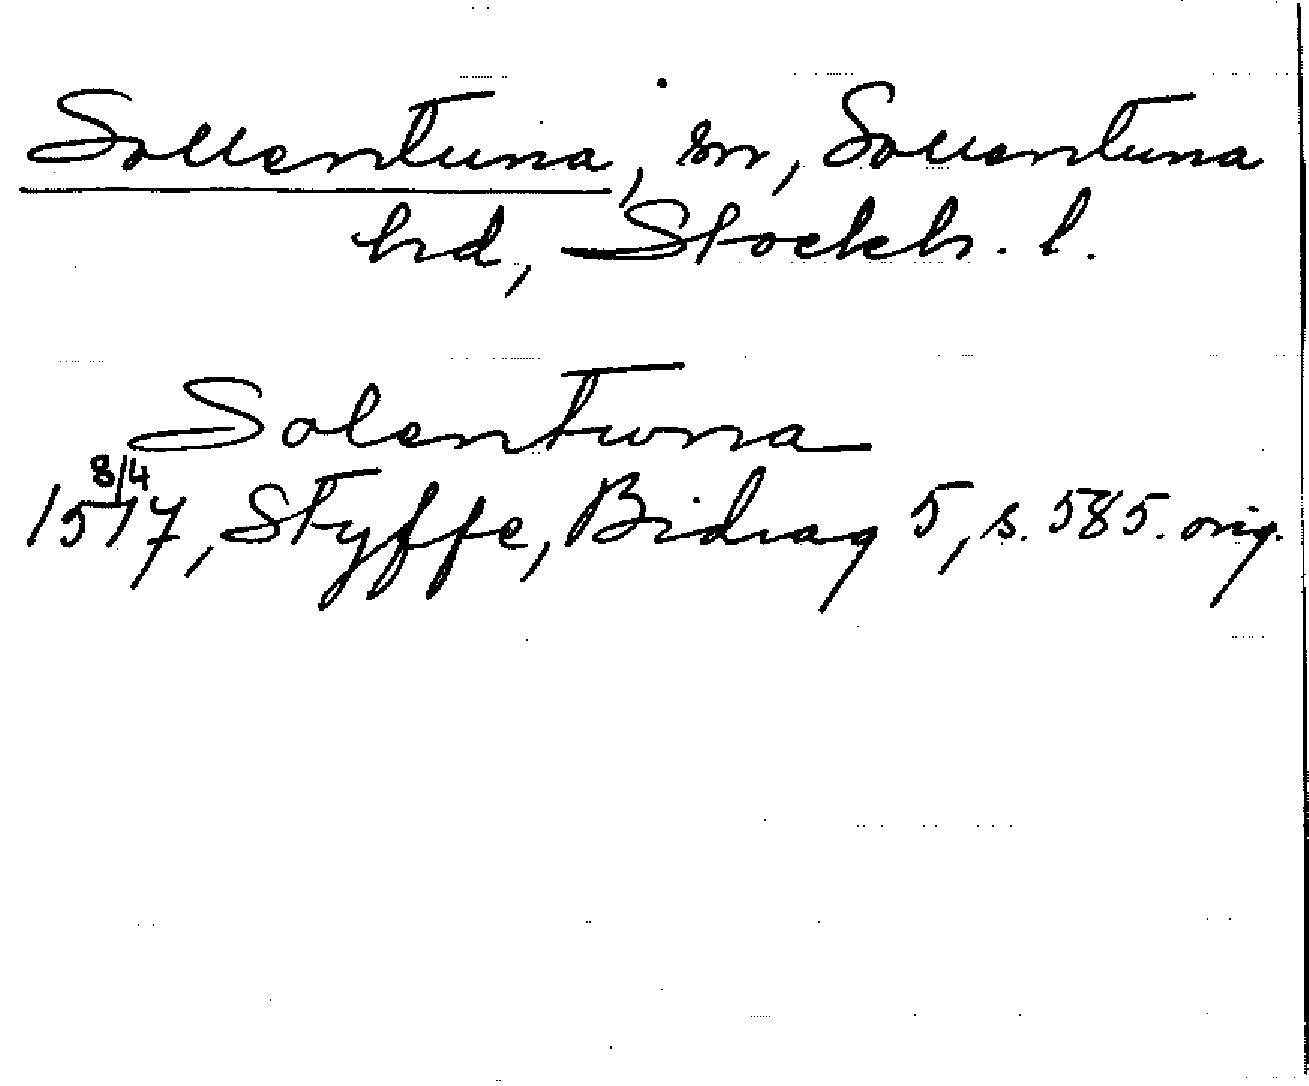 Sollentuna, sn, Sollentuna
hd, Stockh. l.
Solentuna
8/4
1517, Styffe, Bidrag 5, s. 585. orig.